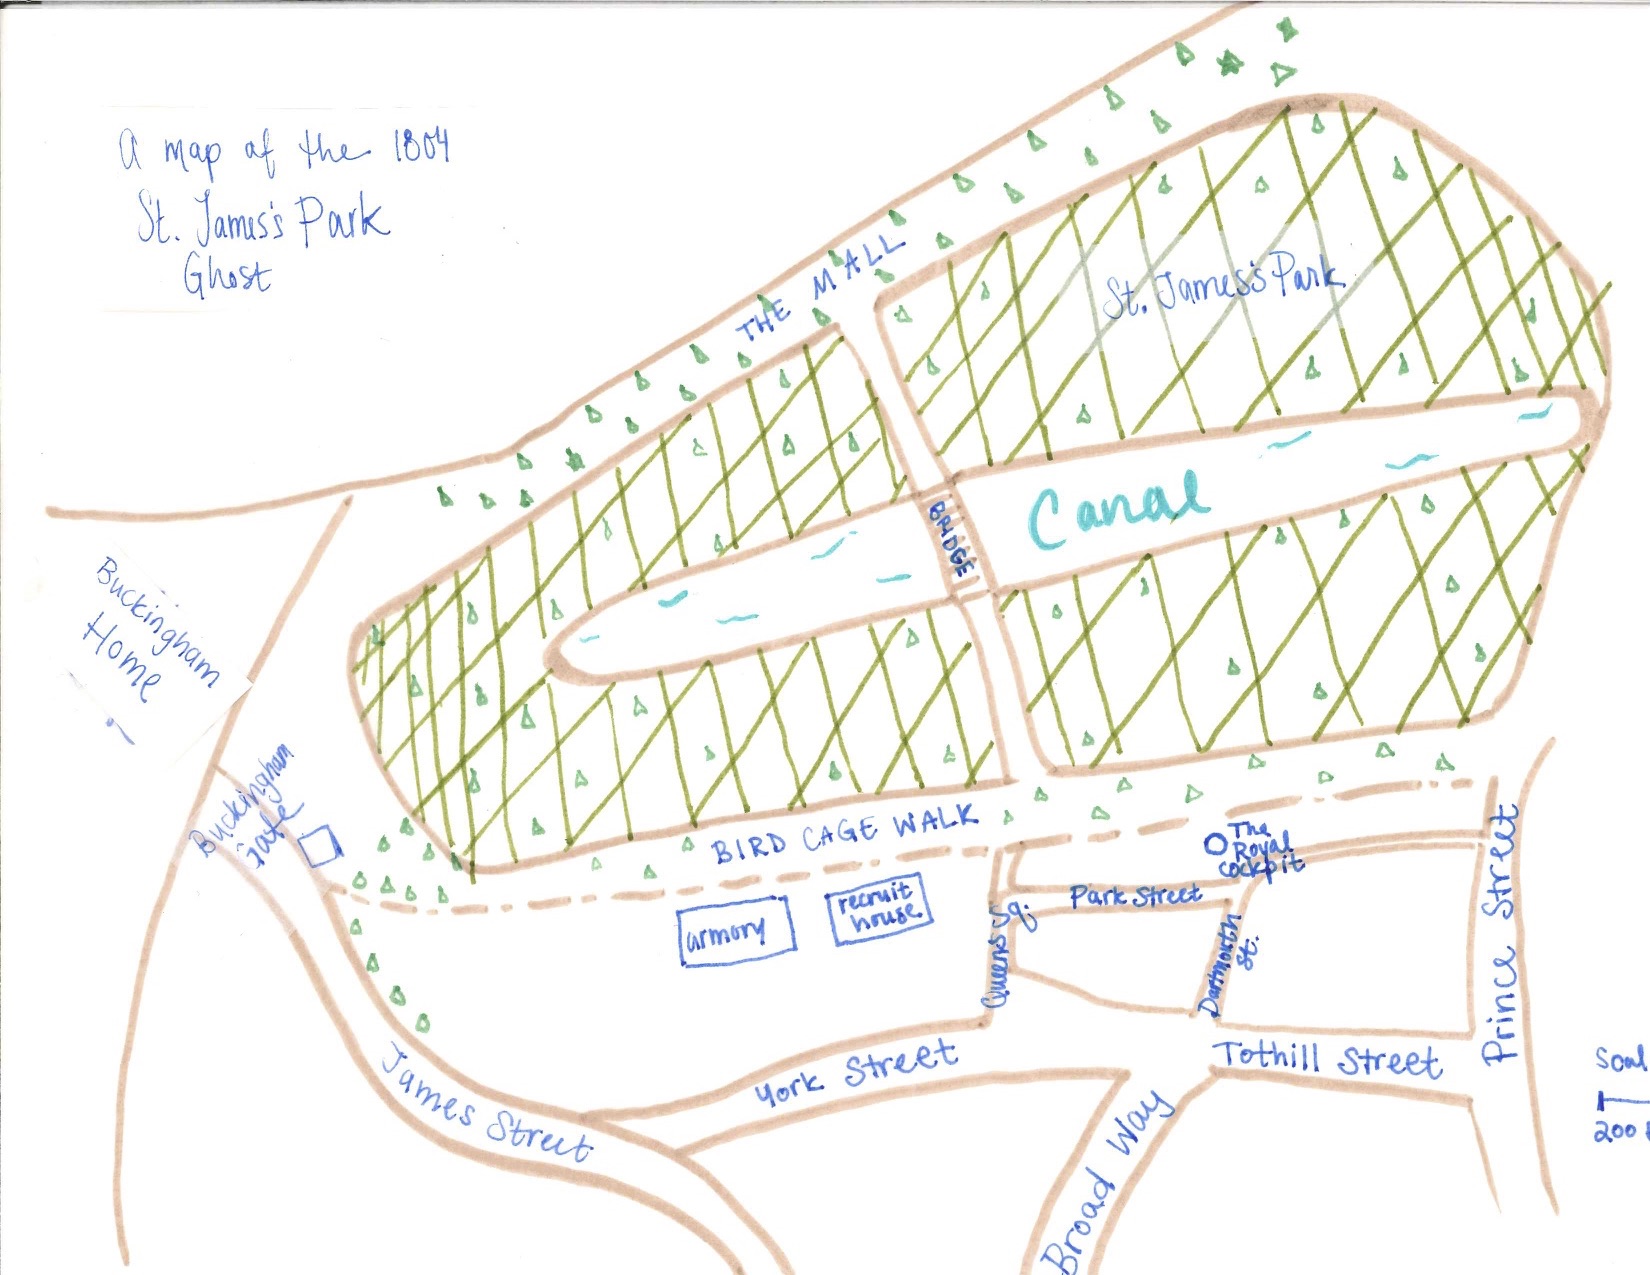 A map of the 1804
St. James's Park
Ghost
THE MALL
St. James's Park
Canal
BRIDGE
Buckingham
Home
Buckingham
Gate
BIRD CAGE WALK
The
Royal
Cockpit
armory
recruit
house
Park Street
Queens Sq.
Dartmouth
St.
Prince Street
James Street
York Street
Tothill Street
Broad Way
Scal
200